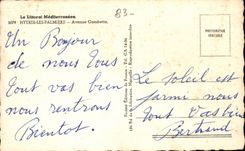 Le Littoral Méditerranéen
HYÈRES-LES-PALMIERS — Avenue Gambetta.
83
Un Bonjour
de nous tous
tout vas bien
nous rentrons
Bientot.
Le soleil est
parmi nous
tout vas bien
Bertrand